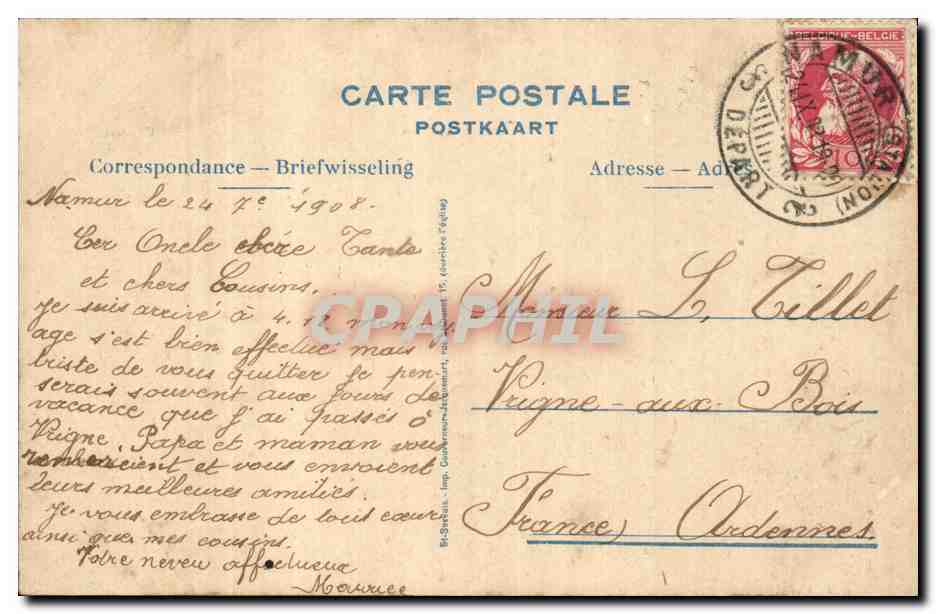 BELGIQUE-BELGIE
NAMUR (STATION)
DÉPART
10
CARTE POSTALE
POSTKAART
Correspondance — Briefwisseling
Adresse — Ad
Namur le 24 7e 1908.
Cer Oncle chère Tante
et chers Cousins.
Je suis arrivé à 4. h mon voy
age s'est bien effectué mais
triste de vous quitter je pen
serais souvent aux jours de
vacance que j'ai passés à
Vrigne. Papa et maman vous
remercient et vous envoient
leurs meilleures amitiés.
Je vous embrasse de tout cœur
ainsi que mes cousins.
Votre neveu affectueux
Maurice
St-Servais - Imp. Gouverneur-Jacquemart, 15, (derrière l'église)
Monsieur L Tillet
Vrigne-aux-Bois
France Ardennes
CPAPHIL